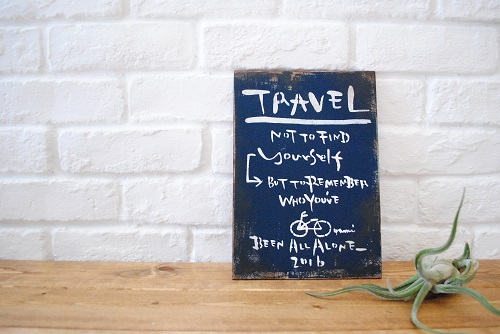 TRAVEL
NOT TO FIND
yourself
BUT TO REMEMBER
WHO YOU'VE
yami
BEEN ALL ALONE_
2016